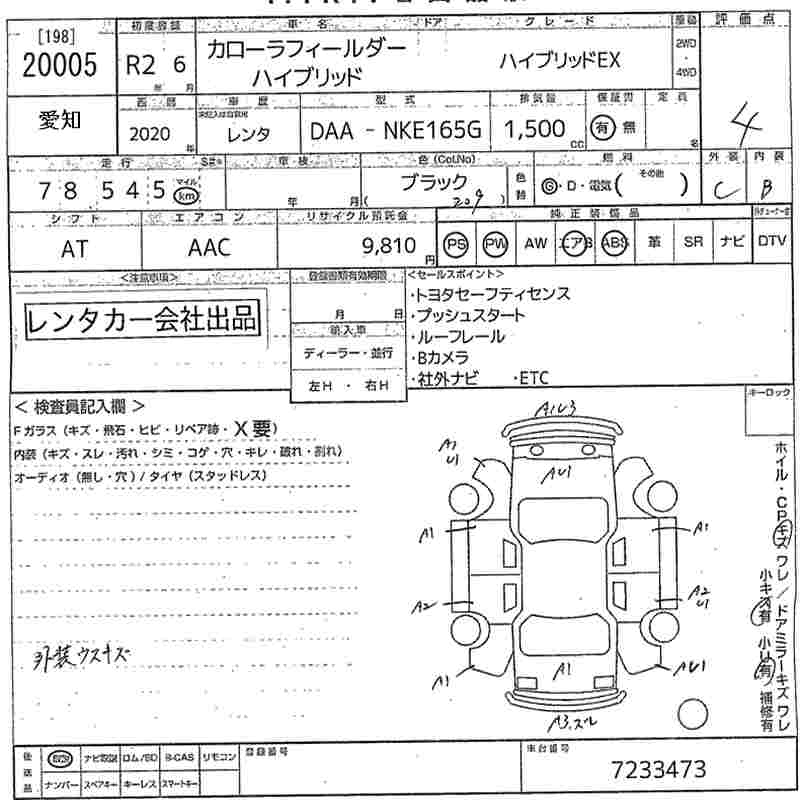 [198]
20005
初度登録
R2 6
年 月
車名 ドア グレード
カローラフィールダー
ハイブリッド
ハイブリッドEX
2WD
・
4WD
評価点
4
愛知
西暦
2020
年
車歴
レンタ
型式
DAA - NKE165G
排気量
1,500
cc
保証書
有 無
定員
名
走行
78 545
マイル
km
車検
年 月
色(Col.No)
ブラック
( 209 )
色替
燃料
G・D・電気( その他 )
外装
C
内装
B
シフト
AT
エアコン
AAC
リサイクル預託金
9,810
円
純正装備品
PS PW AW エアB ABS 革 SR ナビ DTV
<注意事項>
レンタカー会社出品
登録書類有効期限
月 日
輸入車
ディーラー・並行
左H ・ 右H
<セールスポイント>
・トヨタセーフティセンス
・プッシュスタート
・ルーフレール
・Bカメラ
・社外ナビ ・ETC
キーロック
< 検査員記入欄 >
Fガラス(キズ・飛石・ヒビ・リペア跡・X要)
内装(キズ・スレ・汚れ・シミ・コゲ・穴・キレ・破れ・割れ)
オーディオ(無し・穴)/タイヤ(スタッドレス)
外装ウスキズ
A1U3
A1
U1
AU1
A1
A1
A2
A2
U1
A1
A1
AU1
A3.ズレ
ホイル・CPキズワレ/ドアミラーキズワレ
小キズ有 小U有 補修有
後送品
ナビROM/BD B-CAS リモコン
ナンバー スペアキー キーレス スマートキー
登録番号
車台番号
7233473